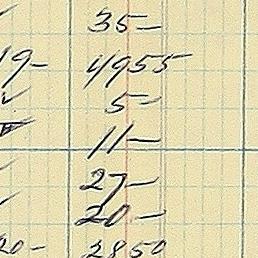 35-
19- 4955
5-
11-
27-
20-
20- 2850